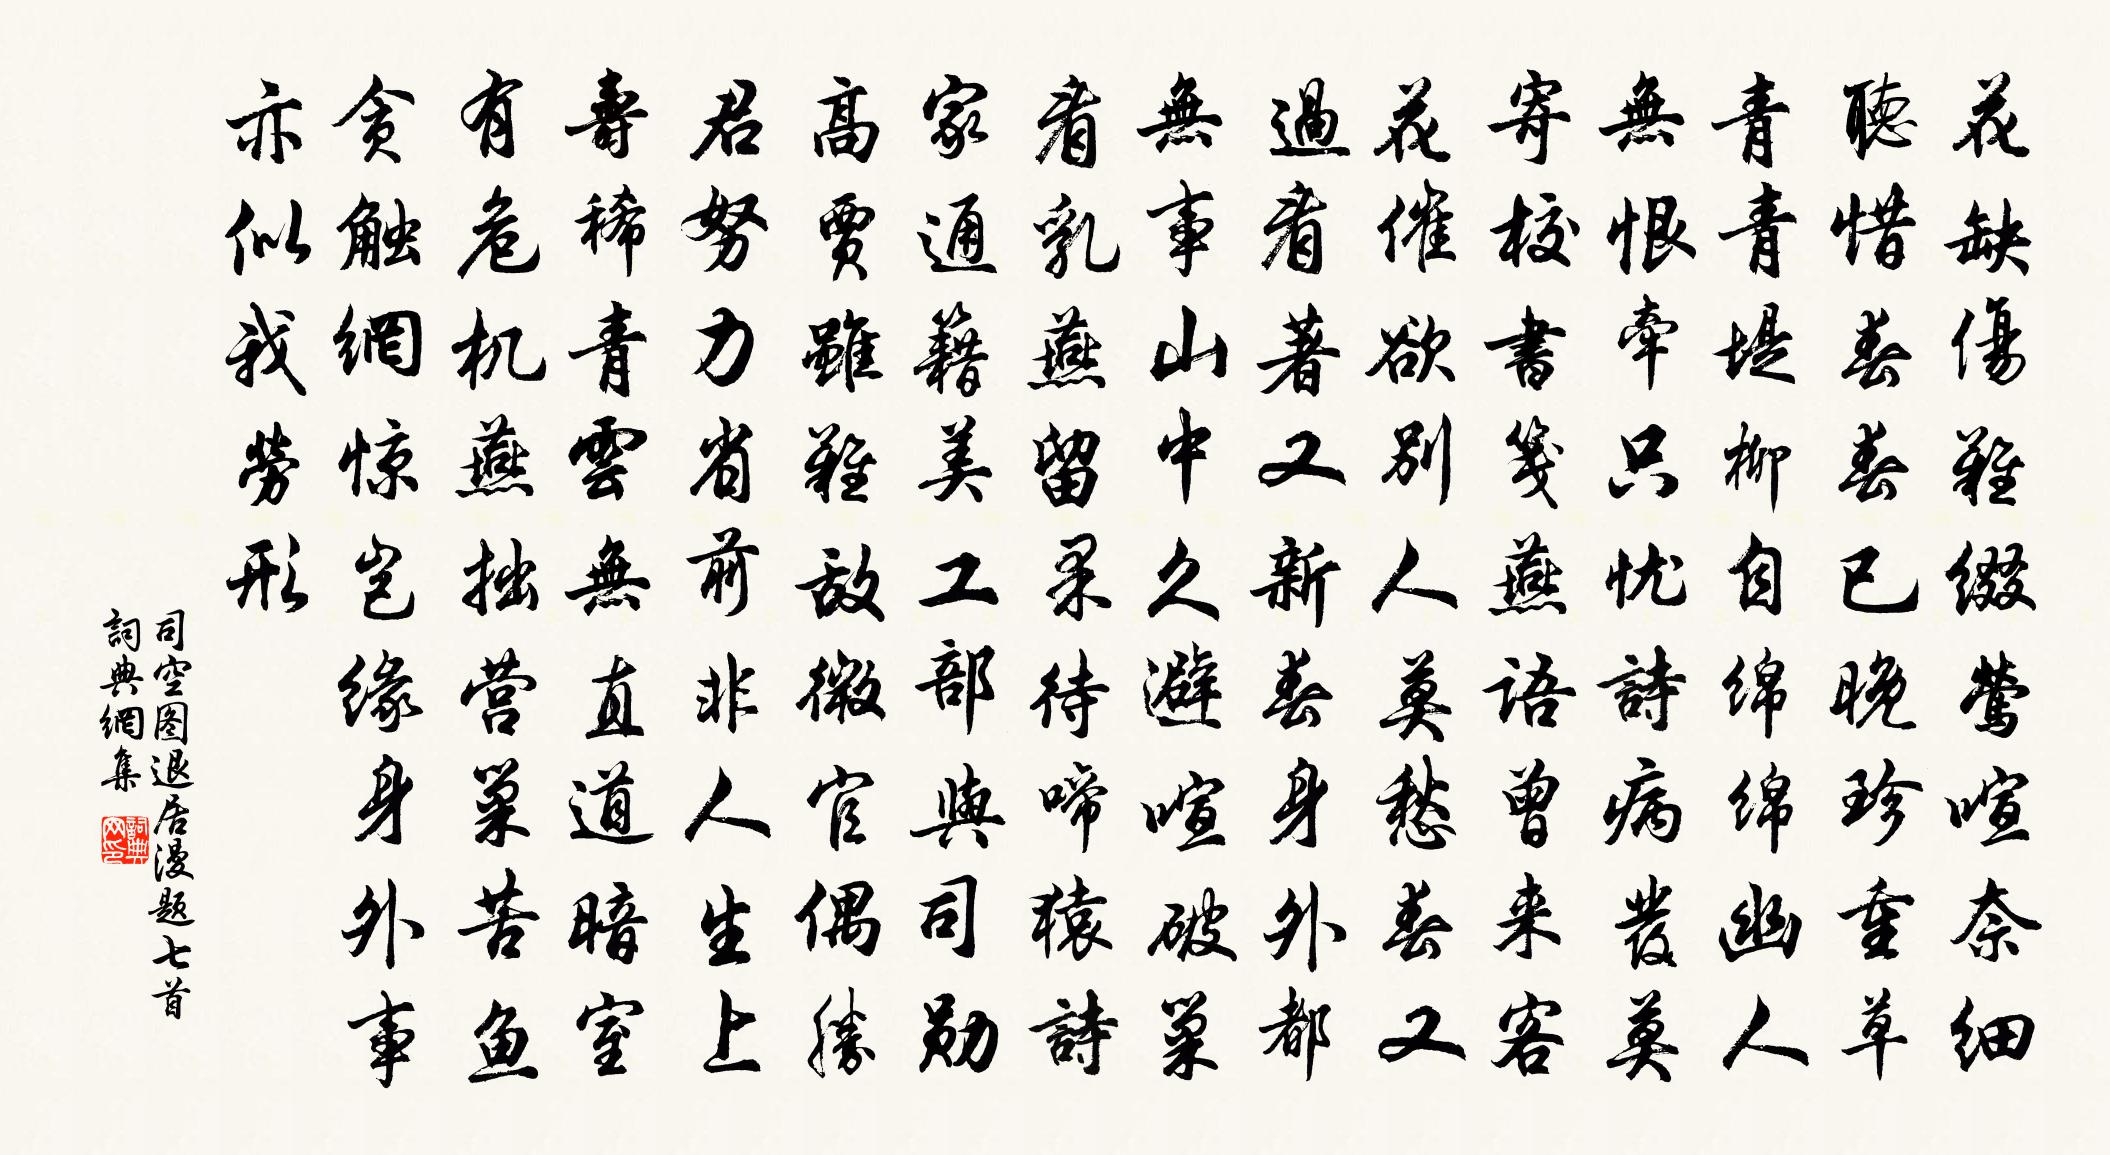 花缺傷難綴鶯喧奈細
聽惜春春已晚珍重草
青青堤柳自绵绵幽人
無恨牽只忧詩病發莫
寄校書箋燕语曾来客
花催欲别人莫愁春又
過看著又新春身外都
無事山中久避喧破巢
看乳燕留果待啼猿詩
家通籍美工部與司勋
高賈雖難敌微官偶勝
君努力省前非人生上
壽稀青雲無直道暗室
有危机燕拙营巢苦鱼
贪触網惊岂缘身外事
亦似我劳形
司空图退居漫题七首
詞典網集
詞典网印